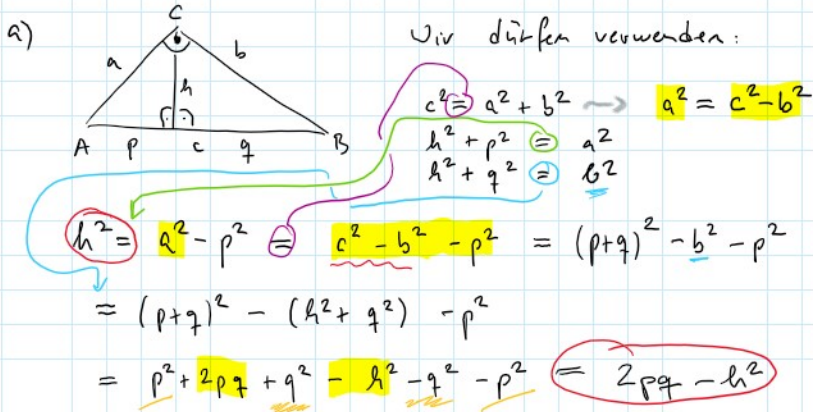 a)
C
a b
h
A p c q B
Wir dürfen verwenden:
c² = a² + b² ⇝ a² = c² - b²
h² + p² = a²
h² + q² = b²
h² = a² - p² = c² - b² - p² = (p+q)² - b² - p²
= (p+q)² - (h² + q²) - p²
= p² + 2pq + q² - h² - q² - p² = 2pq - h²